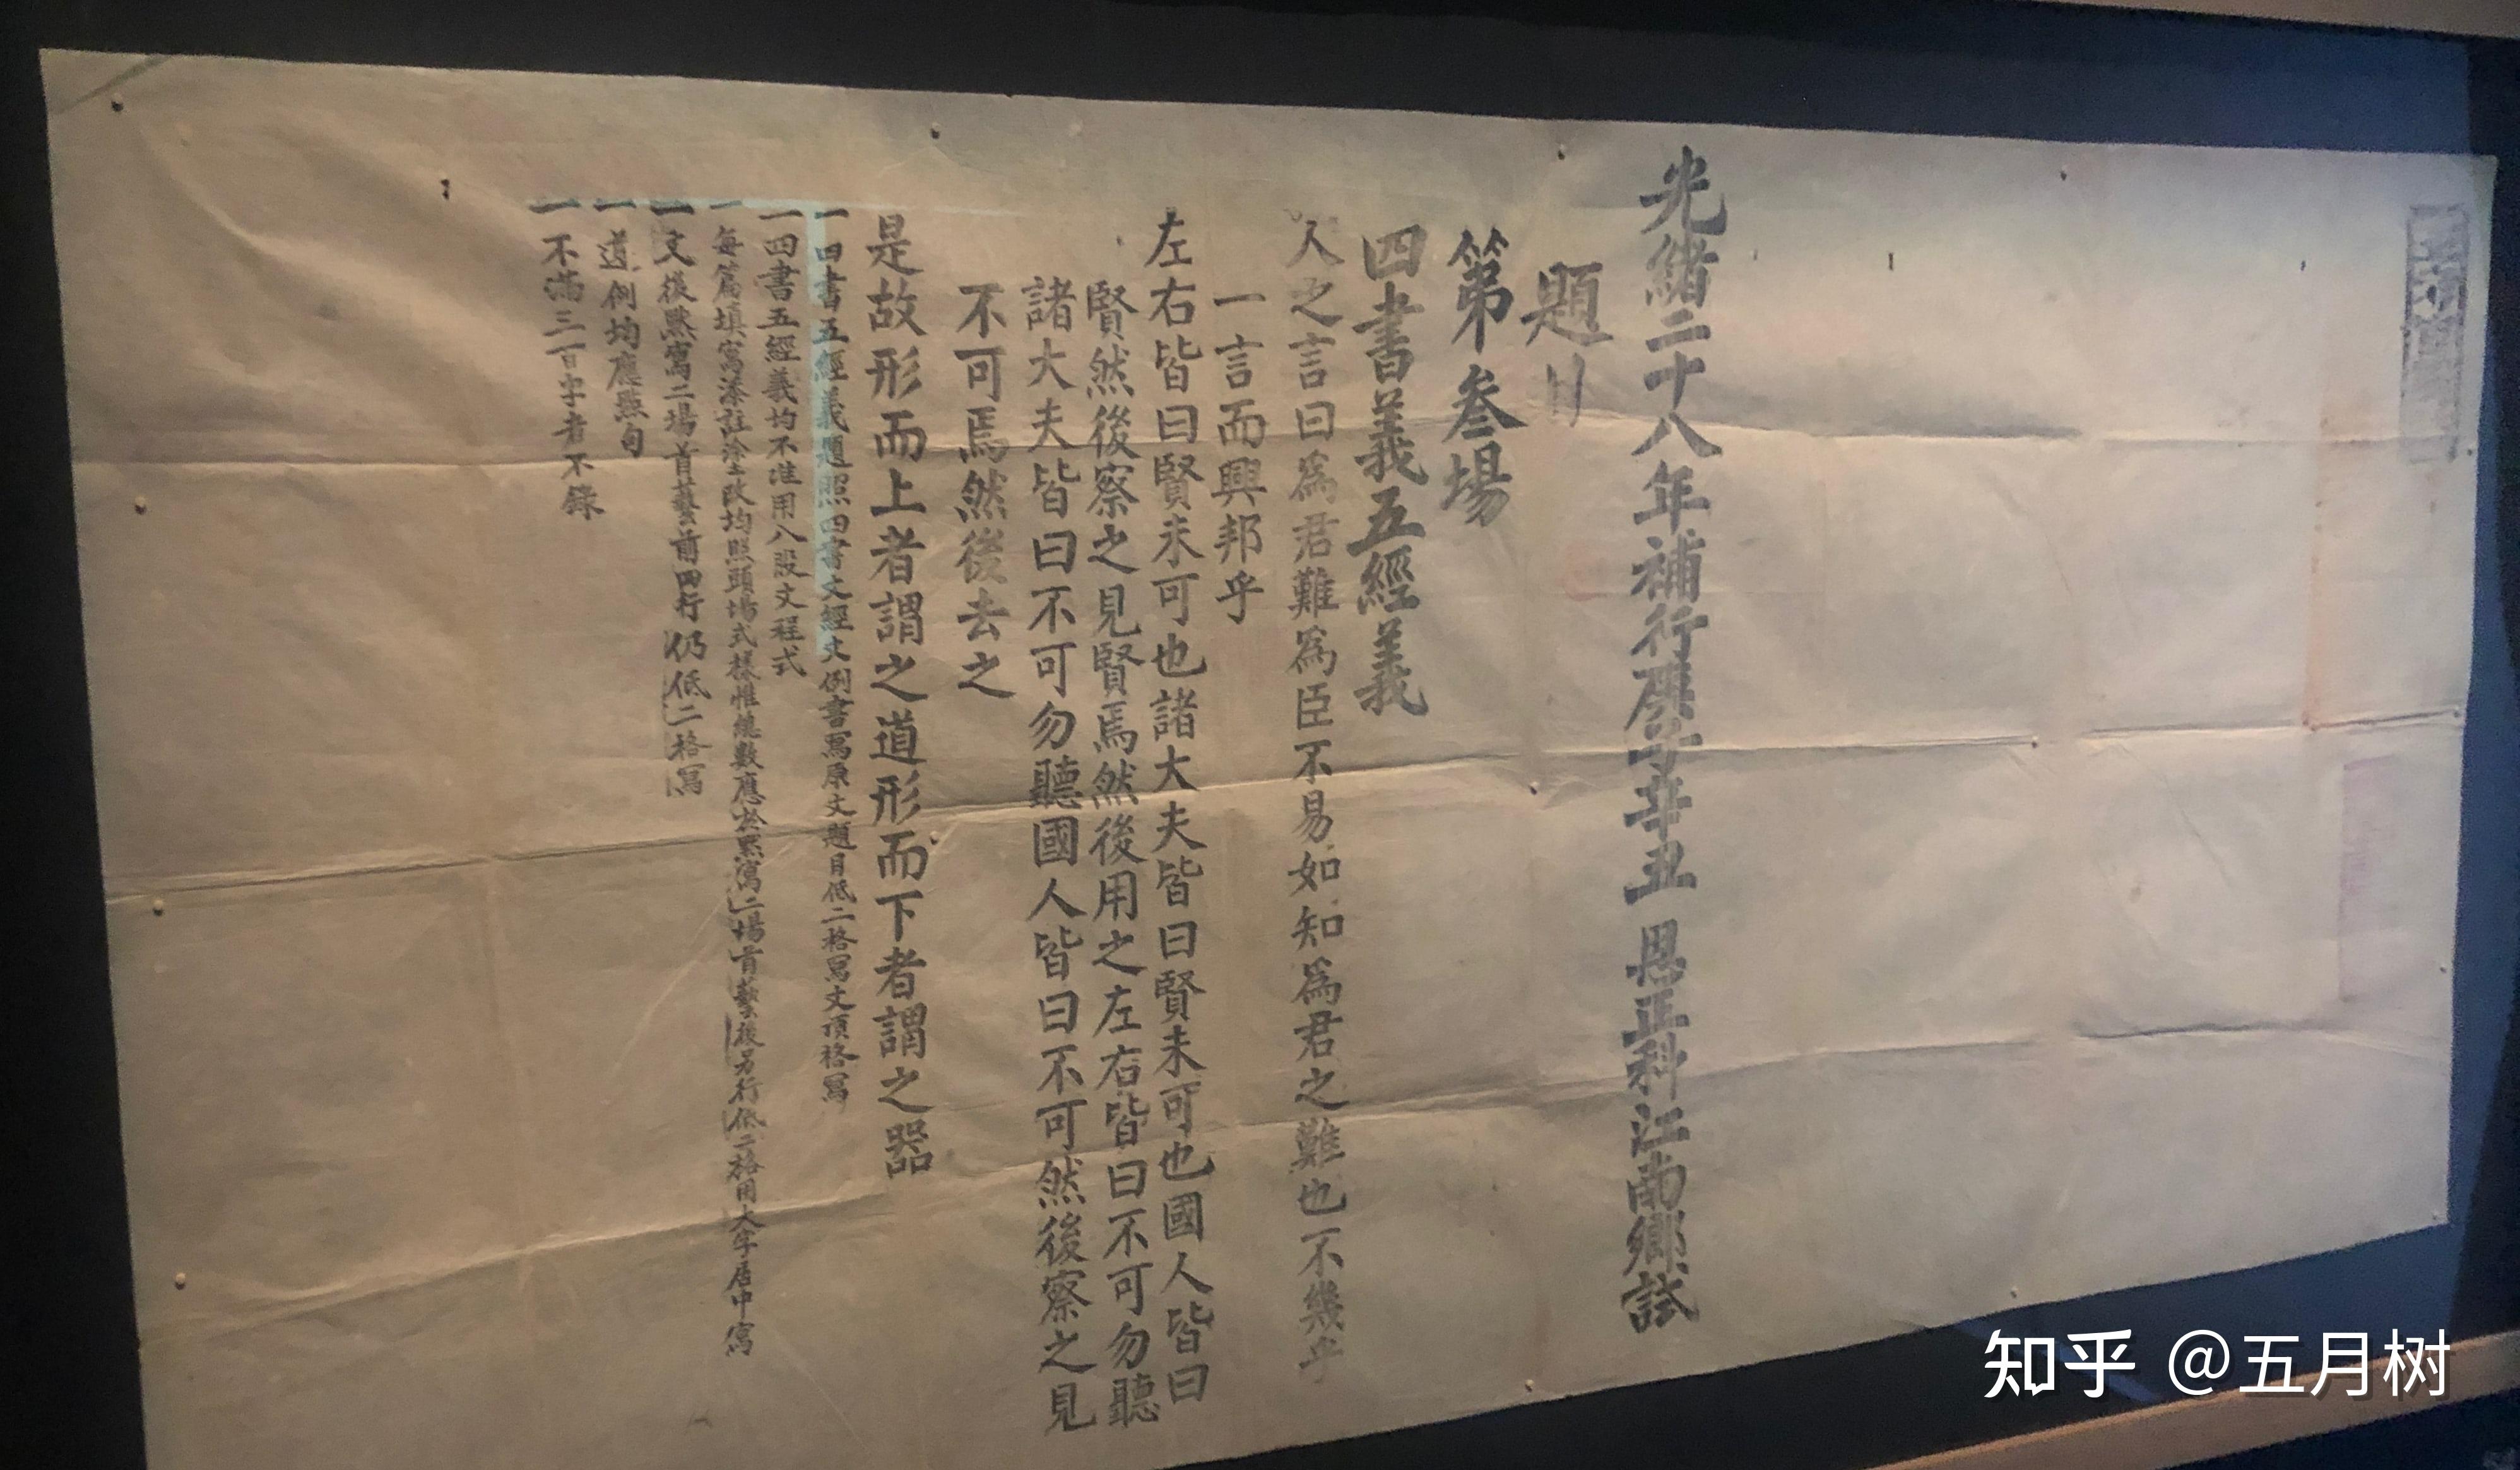 光緒二十八年補行庚子辛丑 恩正科江南鄉試
題
第叁場
四書義五經義
人之言曰爲君難爲臣不易如知爲君之難也不幾乎
一言而興邦乎
左右皆曰賢未可也諸大夫皆曰賢未可也國人皆曰
賢然後察之見賢焉然後用之左右皆曰不可勿聽
諸大夫皆曰不可勿聽國人皆曰不可然後察之見
不可焉然後去之
是故形而上者謂之道形而下者謂之器
一四書五經義題照四書文經文例書寫原文題目低二格寫文頂格寫
一四書五經義均不准用八股文程式
一每篇填寫添註塗改均照頭場式樣惟總數應於默寫二場首藝後另行低二格用大字居中寫
一文後默寫二場首藝前四行仍低二格寫
一道例均應點句
一不滿三百字者不錄
知乎 @五月树